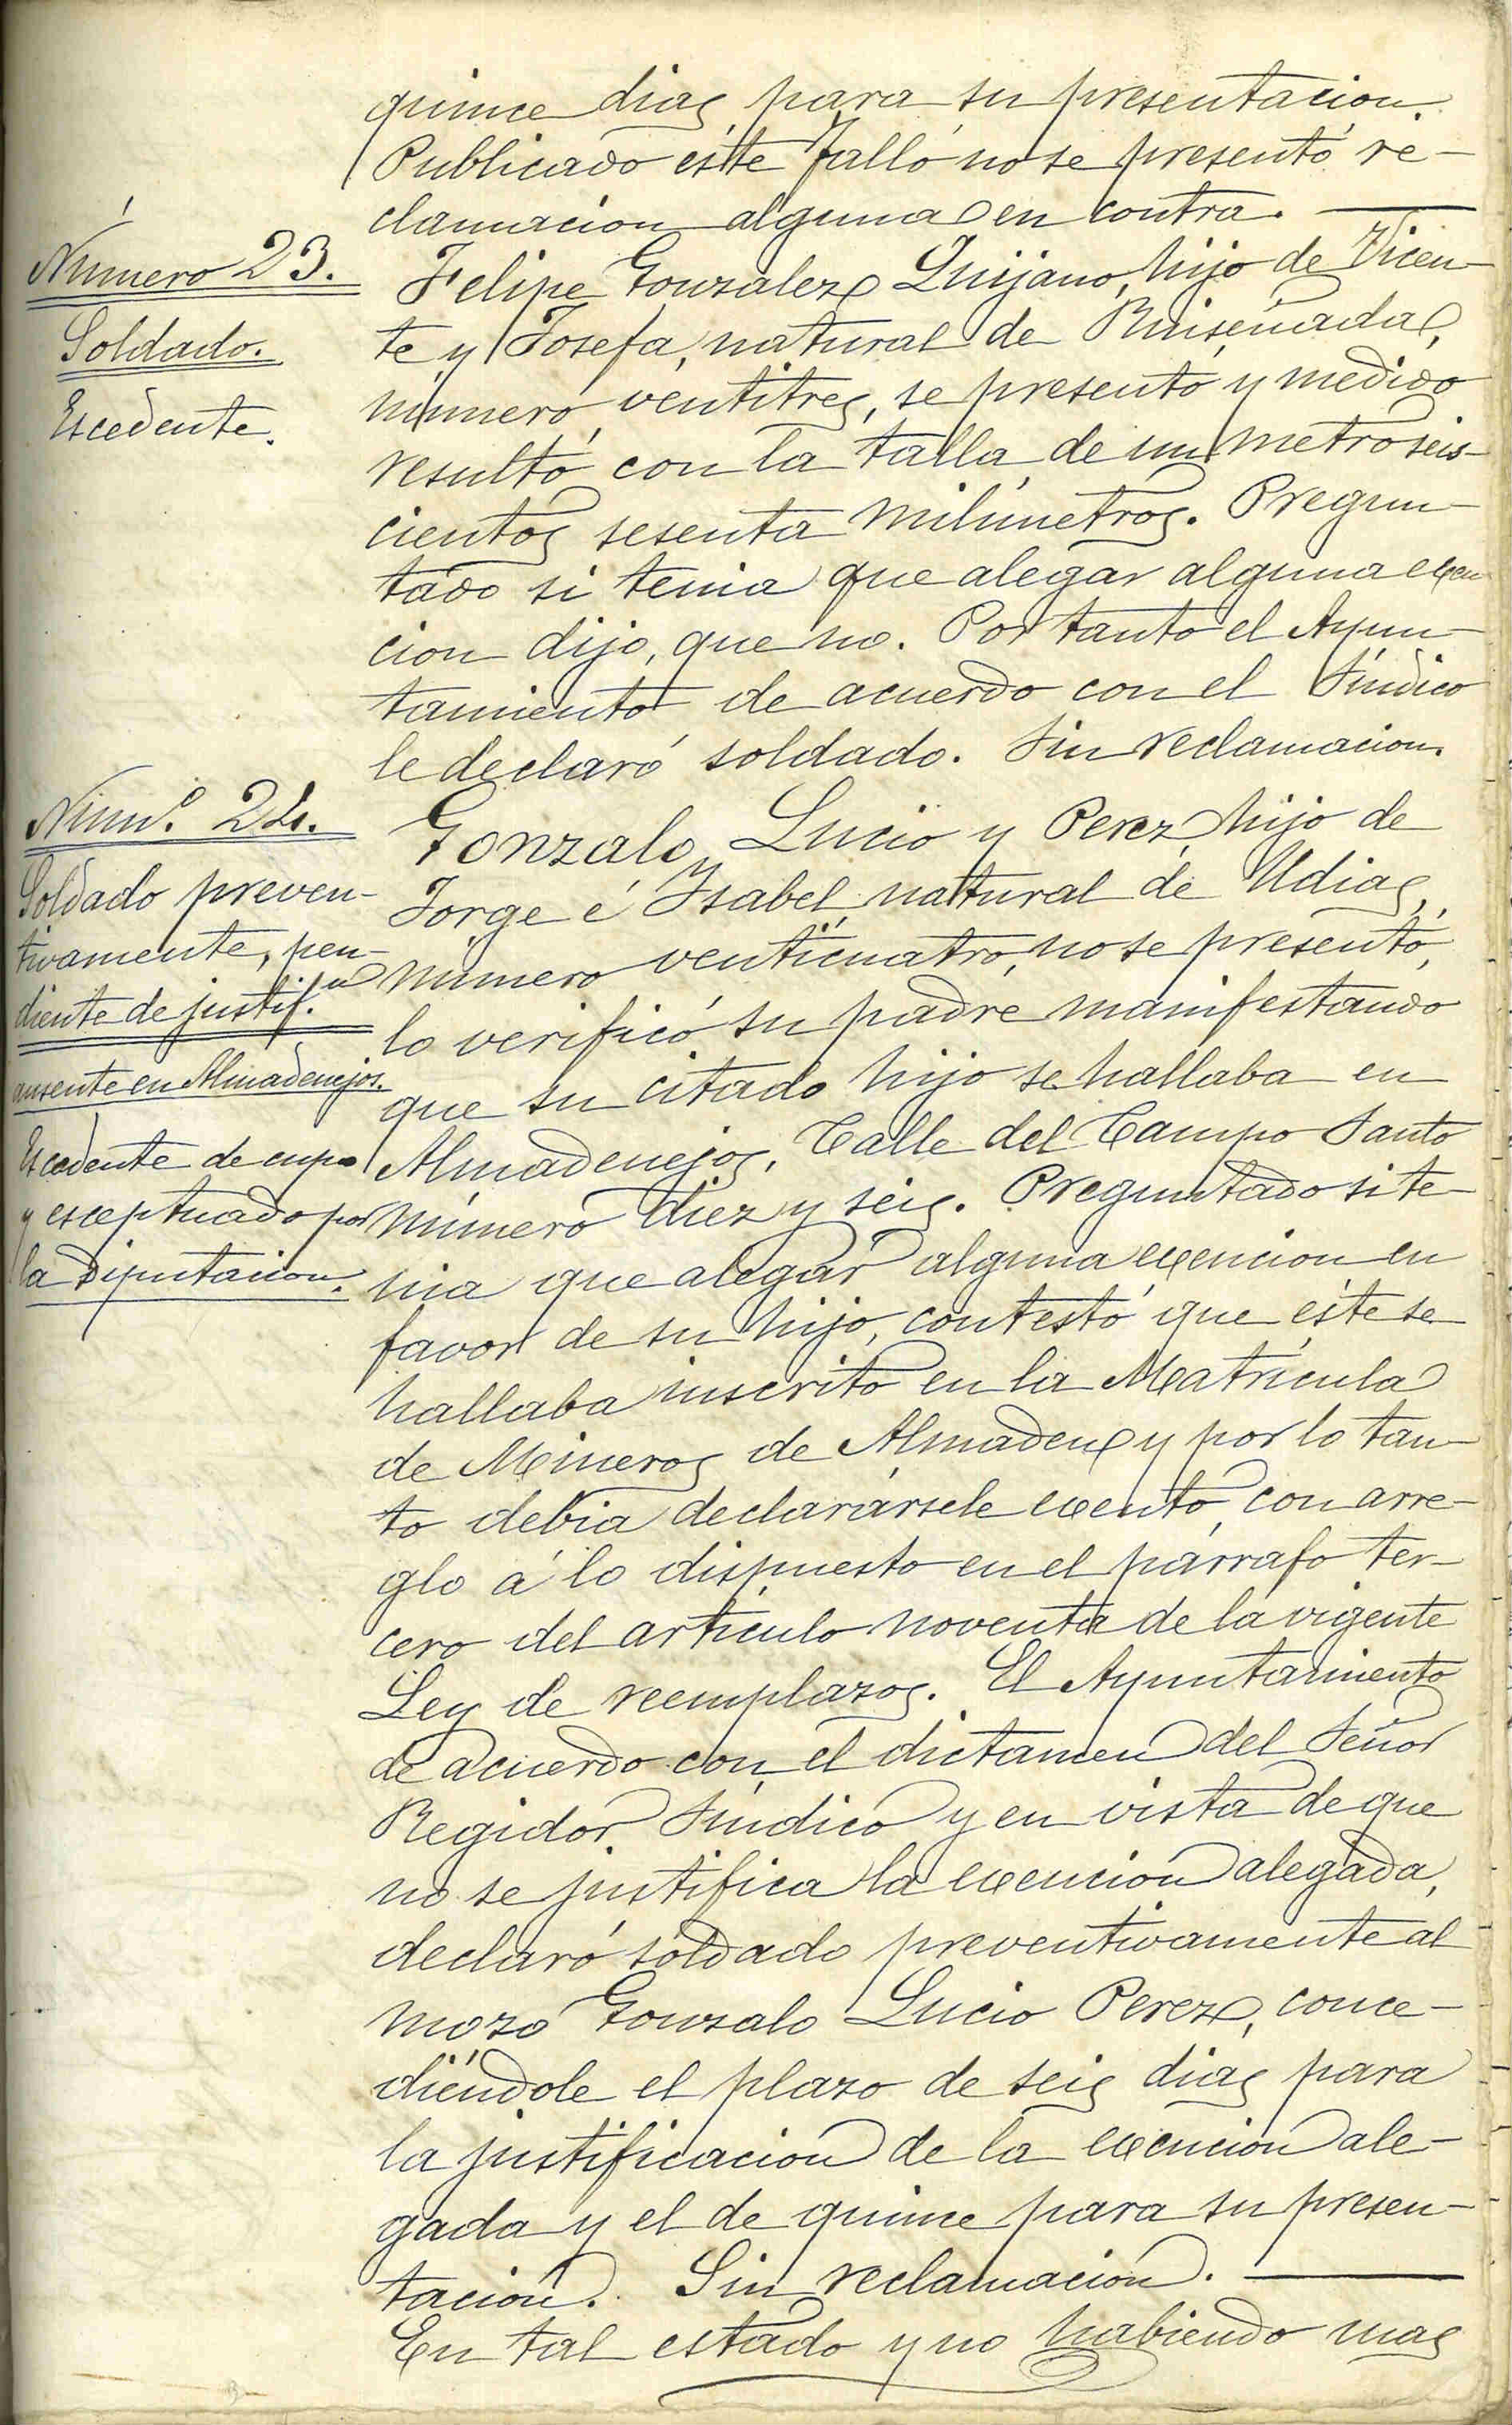 quince dias para su presentacion.
Publicado éste fallo no se presentó re-
clamacion alguna en contra.
Número 23.
Soldado.
Escedente.
Felipe Gonzalez Quijano, hijo de Vicen-
te y Josefa, natural de Ruiseñada,
número ventitres, se presentó y medido
resultó con la talla de un metro seis-
cientos sesenta milímetros. Pregun-
tado si tenia que alegar alguna exen
cion dijo, que no. Por tanto el Ayun-
tamiento de acuerdo con el Síndico
le declaró soldado. Sin reclamacion.
Núm.º 24.
Soldado preven-
tivamente, pen-
diente de justif.on
ausente en Almadenejos.
Escedente de cupo
y esceptuado por
la Diputacion.
Gonzalo Lucio y Perez, hijo de
Jorge é Ysabel, natural de Udias,
número venticuatro, no se presentó,
lo verificó su padre manifestando
que su citado hijo se hallaba en
Almadenejos, Calle del Campo Santo
número diez y seis. Preguntado si te-
nia que alegar alguna exencion en
favor de su hijo, contestó que éste se
hallaba inscrito en la Matrícula
de Mineros de Almaden y por lo tan-
to debia declarársele exento, con arre-
glo á lo dispuesto en el párrafo ter-
cero del artículo noventa de la vigente
Ley de reemplazos. El Ayuntamiento
de acuerdo con el dictamen del Señor
Regidor Síndico y en vista de que
no se justifica la exencion alegada,
declaró soldado preventivamente al
mozo Gonzalo Lucio Perez, conce-
diéndole el plazo de seis dias para
la justificacion de la exencion ale-
gada y el de quince para su presen-
tacion. Sin reclamacion.
En tal estado y no habiendo mas